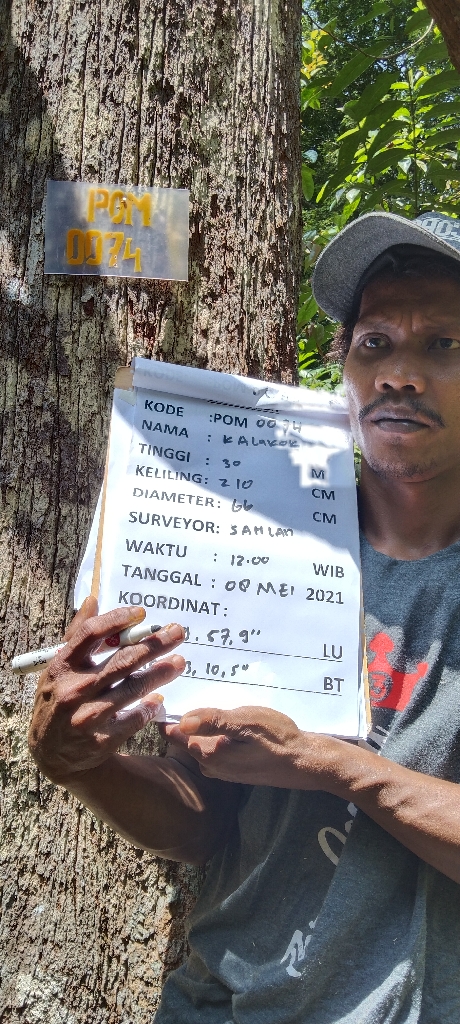 POM
0074
KODE :POM 0074
NAMA : KALAKOK
TINGGI : 30 M
KELILING: 210 CM
DIAMETER: 66 CM
SURVEYOR: SAHLAN
WAKTU : 12.00 WIB
TANGGAL : 08 MEI 2021
KOORDINAT:
, 57,9" LU
, 10,5" BT